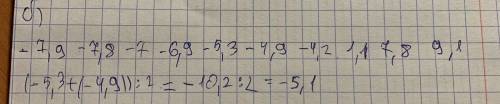 б)
-7,9 -7,8 -7 -6,9 -5,3 -4,9 -4,2 1,1 7,8 9,1
(-5,3+(-4,9)):2=-10,2:2=-5,1